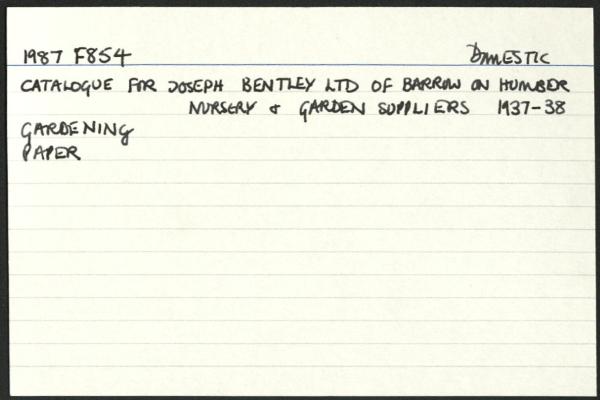 1987 F854 DOMESTIC
CATALOGUE FOR JOSEPH BENTLEY LTD OF BARROW ON HUMBER
NURSERY & GARDEN SUPPLIERS 1937-38
GARDENING
PAPER